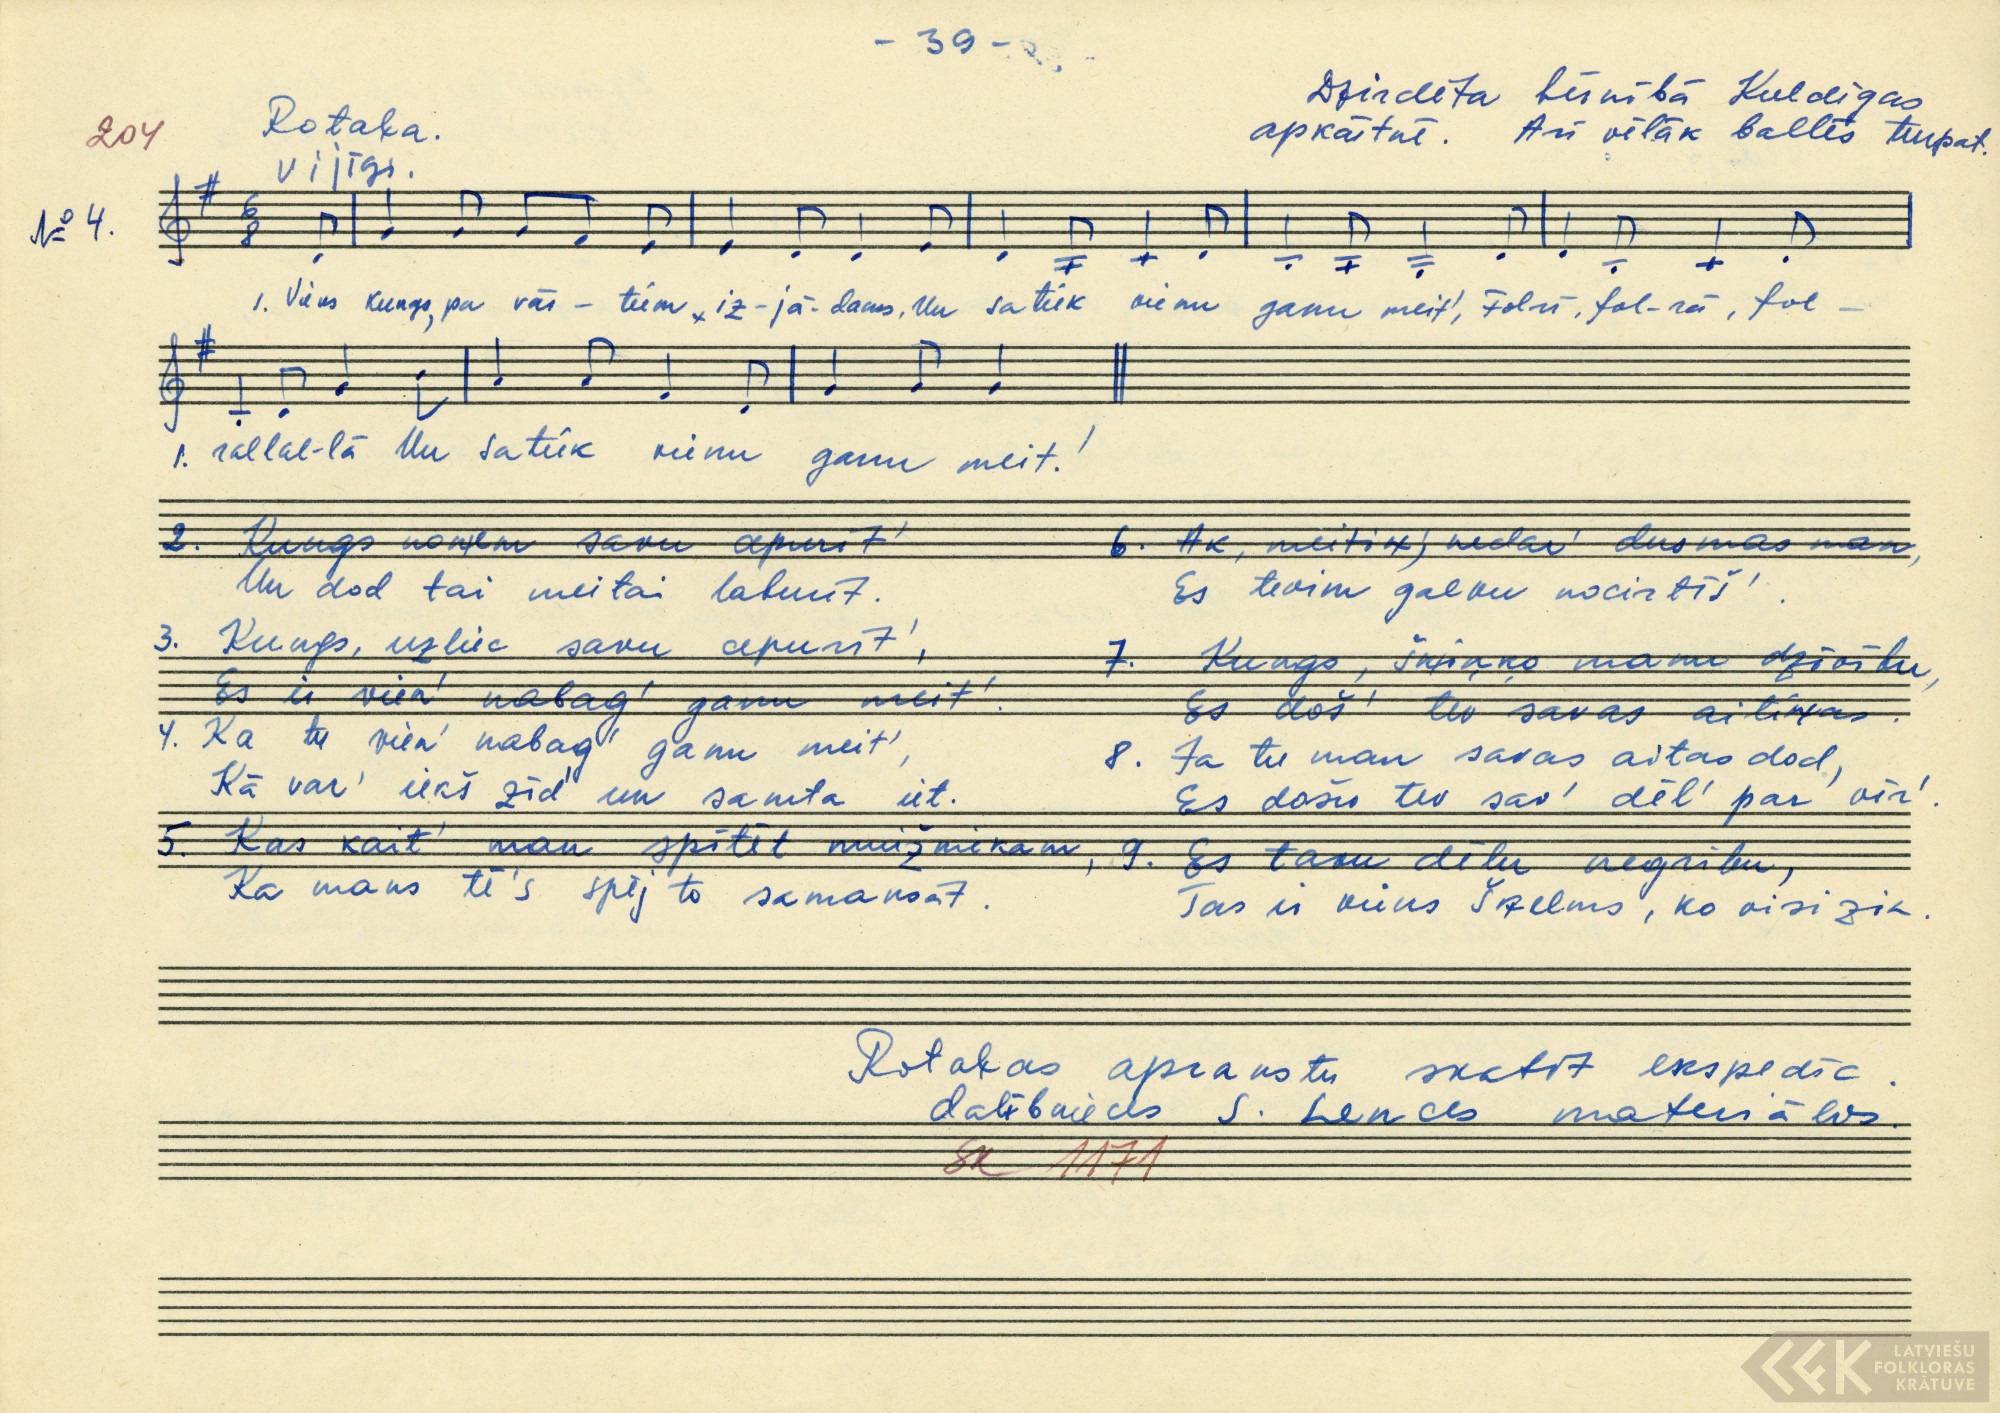 - 39 -
Dzirdēta bērnībā Kuldīgas
apkārtnē. Arī vēlāk ballēs turpat.
204
Rotaļa.
Vijīgi.
№ 4.
1. Viens kungs, pa vār-tiem iz-jā-dams, Un satiek vienu ganu meit', Folrī, fol-rā, fol-
1. rallal-lā Un satiek vienu ganu meit!
2. Kungs noņem savu cepurīt'
Un dod tai meitai laburīt.
3. Kungs, uzliec savu cepurīt',
Es ir vien' nabag' ganu meit'.
4. Ka tu vien' nabag' ganu meit',
Kā var' iekš zīd' un samta iet.
5. Kas kait' man spītēt muižniekam,
Ka mans tē's spēj to samaksāt.
6. Ak, meitiņ, nedar' dusmas man,
Es tevim galvu nocirtīš'.
7. Kungs, šķiņķo manu dzīvību,
Es doš' tev savas aitiņas.
8. Ja tu man savas aitas dod,
Es došu tev sav' dēl' par vīr'.
9. Es tavu dēlu negribu,
Tas ir viens šķelms, ko visi zin.
Rotaļas aprakstu skatīt ekspedīc.
dalībnieces S. Lences materiālos.
SK 1171
LATVIEŠU
FOLKLORAS
KRĀTUVE